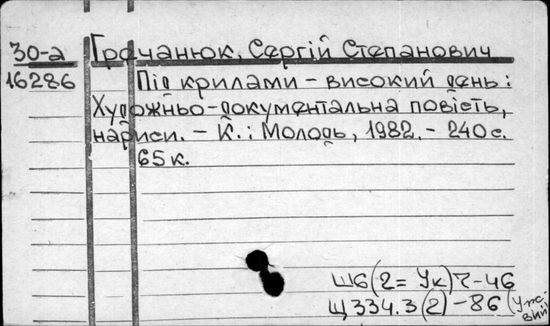 30-а Грачанюк, Сергій Степанович
16286 Під крилами – високий день:
Художньо-документальна повість,
нариси. – К.: Молодь, 1982. – 240 с.
65 к.
Ш6(2=Ук)7-46
Щ334.3(2)-86